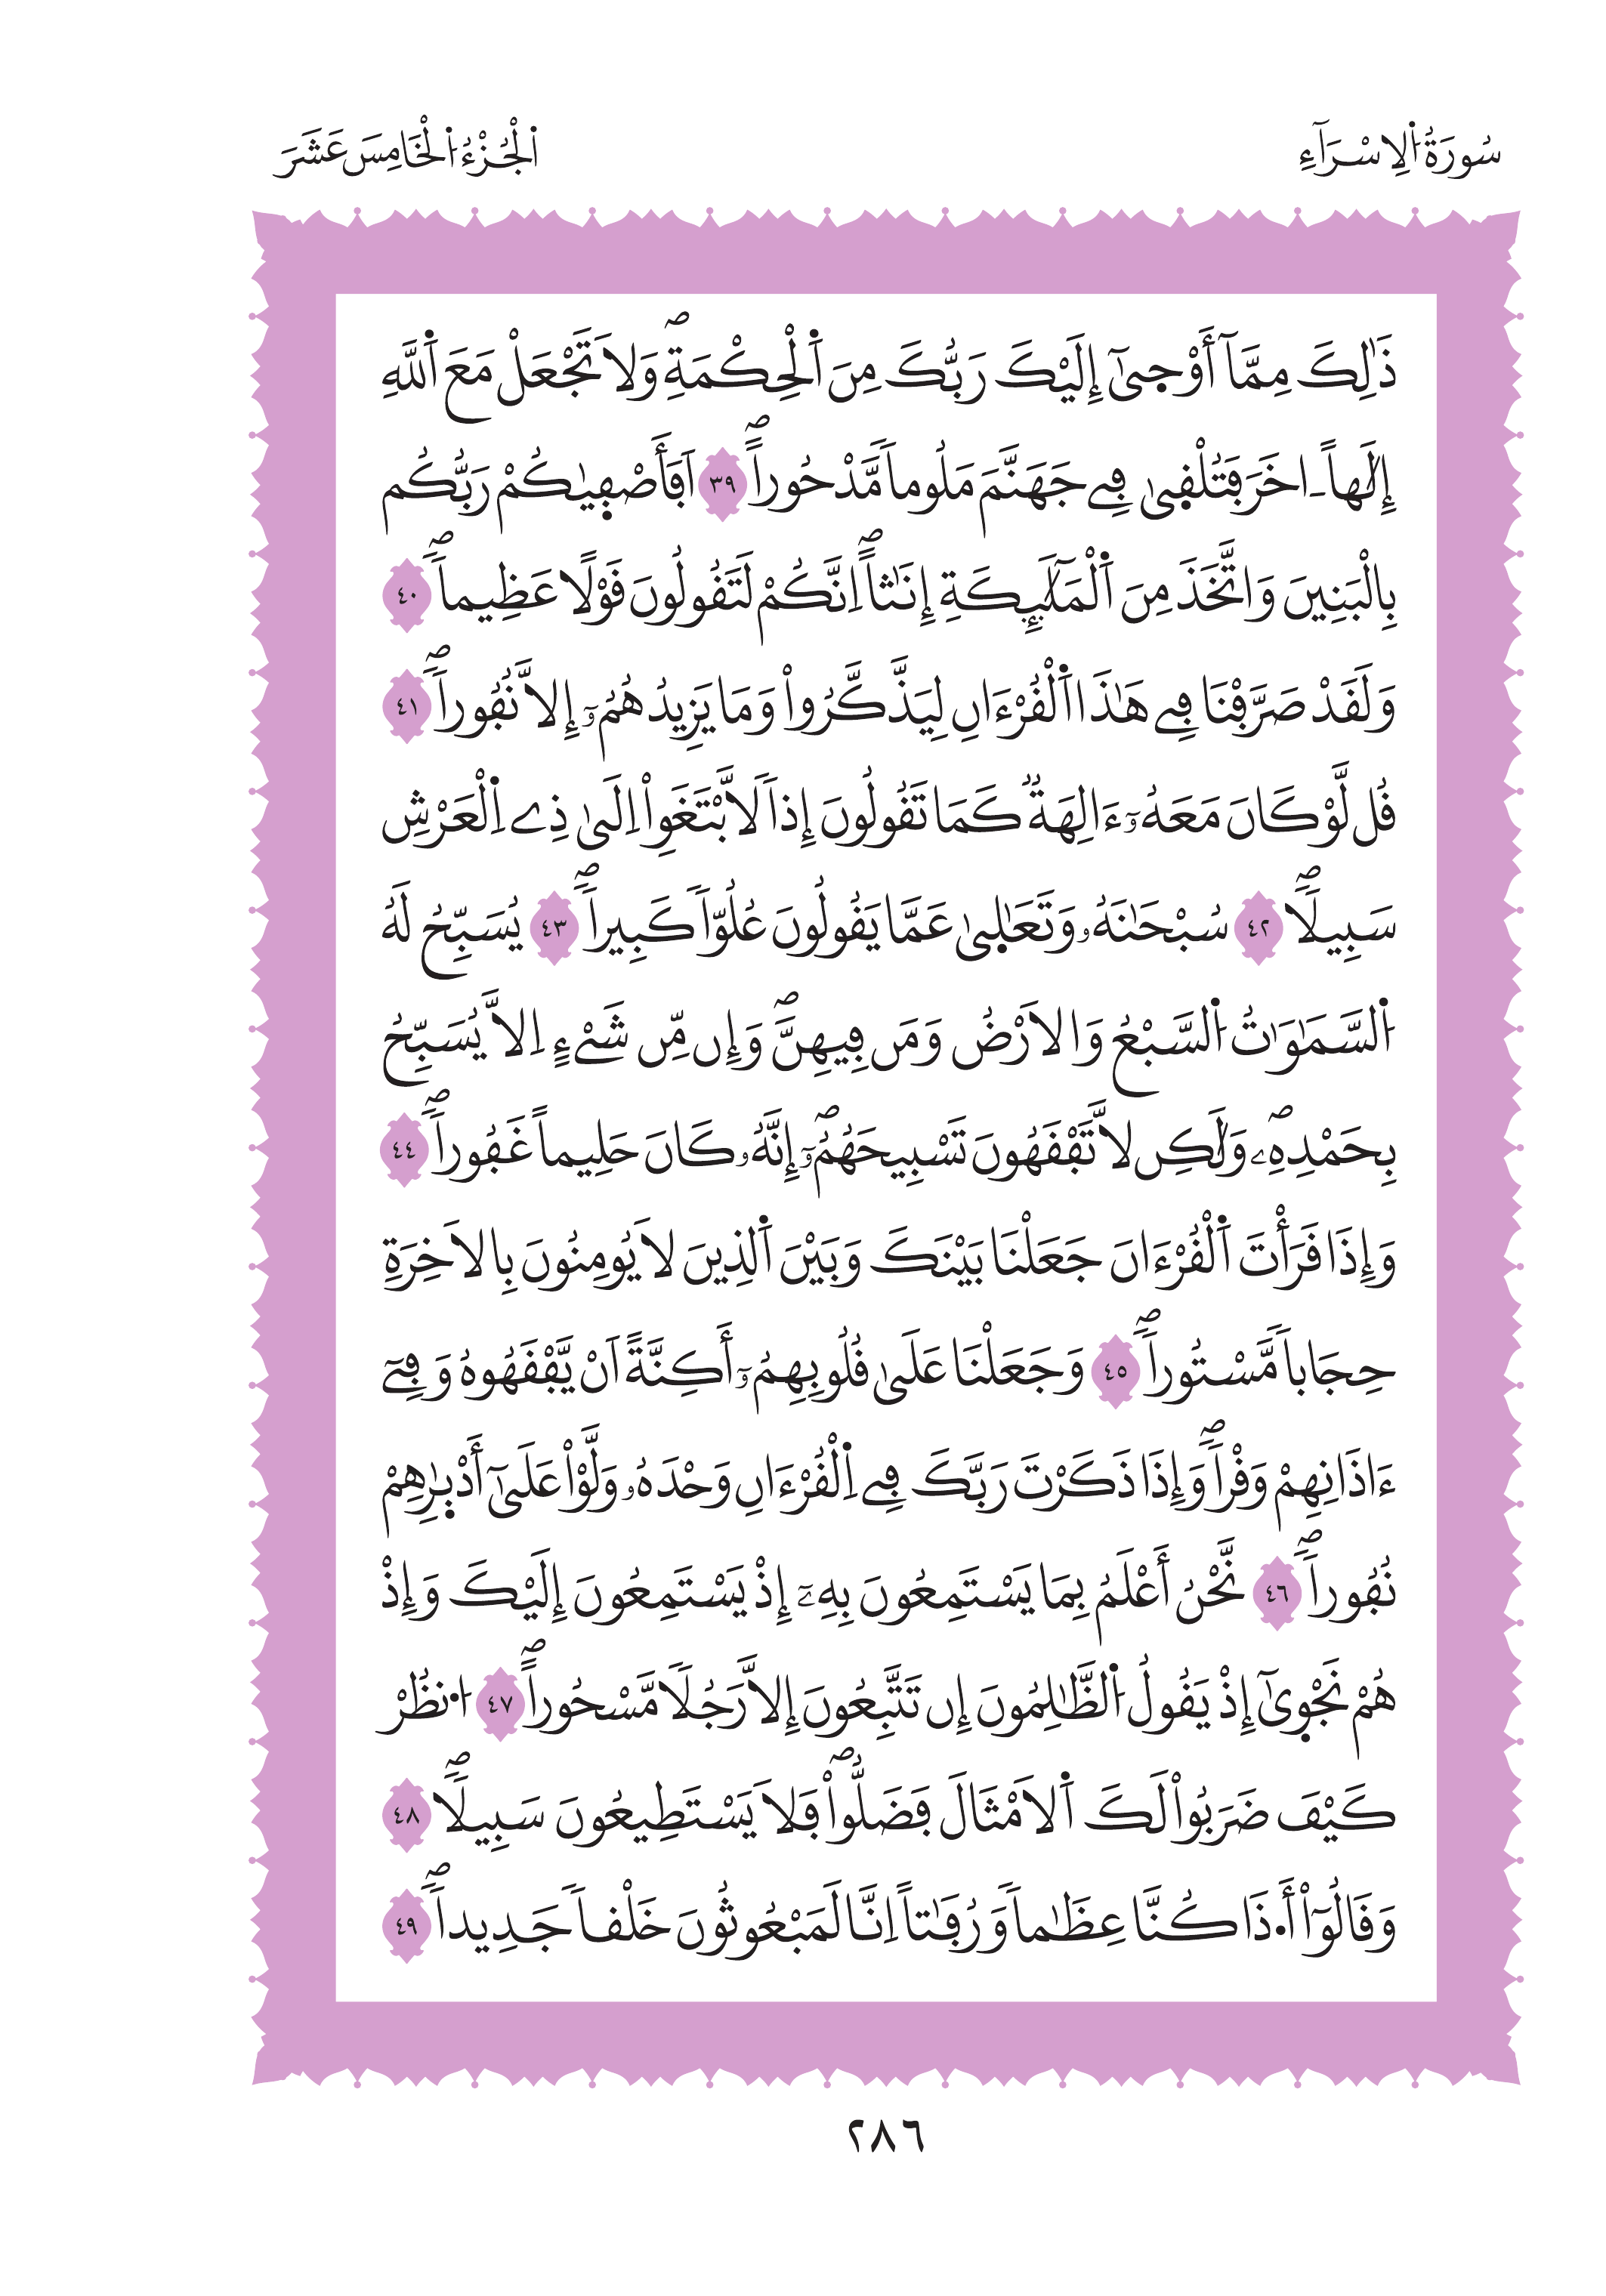 سُورَةُ اُ۬لِاسْرَآءِ
اَ۬لْجُزْءُ اُ۬لْخَامِسَ عَشَرَ
ذَٰلِكَ مِمَّآ أَوْح۪يٰٓ إِلَيْكَ رَبُّكَ مِنَ اَ۬لْحِكْمَةِۖ وَلَا تَجْعَلْ مَعَ اَ۬للَّهِ
إِلَٰهاً ـ اخَرَ فَتُلْق۪يٰ فِے جَهَنَّمَ مَلُوماٗ مَّدْحُوراًۖ ٣٩ اَفَأَصْف۪يٰكُمْ رَبُّكُم
بِالْبَنِينَ وَاتَّخَذَ مِنَ اَ۬لْمَلَٰٓئِكَةِ إِنَٰثاًۖ اِنَّكُمْ لَتَقُولُونَ قَوْلًا عَظِيماٗۖ ٤٠
وَلَقَدْ صَرَّفْنَا فِے هَٰذَا اَ۬لْقُرْءَانِ لِيَذَّكَّرُواْ وَمَا يَزِيدُهُمُۥٓ إِلَّا نُفُوراٗۖ ٤١
قُل لَّوْ كَانَ مَعَهُۥٓ ءَالِهَةٞ كَمَا تَقُولُونَ إِذاٗ لَّابْتَغَوِاْ اِلَىٰ ذِے اِ۬لْعَرْشِ
سَبِيلاٗۖ ٤٢ سُبْحَٰنَهُۥ وَتَعَٰل۪يٰ عَمَّا يَقُولُونَ عُلُوّاٗ كَبِيراٗۖ ٤٣ يُسَبِّحُ لَهُ
اُ۬لسَّمَٰوَٰتُ اُ۬لسَّبْعُ وَالَارْضُ وَمَن فِيهِنَّۖ وَإِن مِّن شَےْءٍ اِلَّا يُسَبِّحُ
بِحَمْدِهِۦۖ وَلَٰكِن لَّا تَفْقَهُونَ تَسْبِيحَهُمُۥٓۖ إِنَّهُۥ كَانَ حَلِيماً غَفُوراٗۖ ٤٤
وَإِذَا قَرَأْتَ اَ۬لْقُرْءَانَ جَعَلْنَا بَيْنَكَ وَبَيْنَ اَ۬لذِينَ لَا يُومِنُونَ بِالَاخِرَةِ
حِجَاباٗ مَّسْتُوراٗۖ ٤٥ وَجَعَلْنَا عَلَىٰ قُلُوبِهِمُۥٓ أَكِنَّةً اَنْ يَّفْقَهُوهُ وَفِےٓ
ءَاذَانِهِمْ وَقْراٗۖ وَإِذَا ذَكَرْتَ رَبَّكَ فِے اِ۬لْقُرْءَانِ وَحْدَهُۥ وَلَّوْاْ عَلَىٰٓ أَدْبٰ۪رِهِمْ
نُفُوراٗۖ ٤٦ نَّحْنُ أَعْلَمُ بِمَا يَسْتَمِعُونَ بِهِۦٓ إِذْ يَسْتَمِعُونَ إِلَيْكَ وَإِذْ
هُمْ نَجْو۪يٰٓ إِذْ يَقُولُ اُ۬لظَّٰلِمُونَ إِن تَتَّبِعُونَ إِلَّا رَجُلاٗ مَّسْحُوراًۖ ٤٧ اُ۟نظُرْ
كَيْفَ ضَرَبُواْ لَكَ اَ۬لَامْثَالَ فَضَلُّواْۖ فَلَا يَسْتَطِيعُونَ سَبِيلاٗۖ ٤٨
وَقَالُوٓاْ أَ.ذَا كُنَّا عِظَٰماٗ وَرُفَٰتاً اِنَّا لَمَبْعُوثُونَ خَلْقاٗ جَدِيداٗۖ ٤٩
٢٨٦